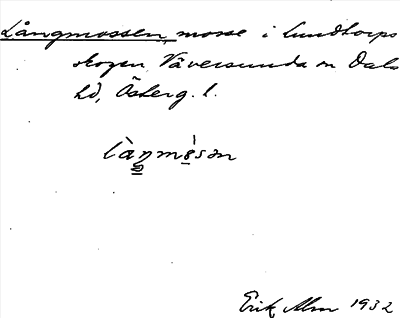 Långmossen, mosse i Lundtorps
skogen Väversunda sn Dals
hd, Österg. l.
Erik Alm 1932